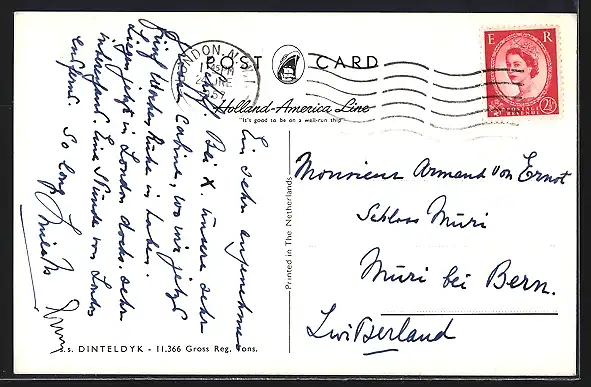 POST CARD
Holland-America Line
"It's good to be on a well-run ship"
LONDON. N.W.1
E R
POSTAGE REVENUE
2½
Ein sehr angenehmes
Schiff. Bei X. unsere sehr
grosse Cabine, wo wir jetzt
fünf Wochen Ruhe in haben.
Liegen jetzt in London docks. sehr
interessant. Eine Stunde von London
entfernt. So long
Monsieur Armand von Ernst
Schloss Muri
Muri bei Bern.
Switzerland
Printed in The Netherlands
s.s. DINTELDYK - 11.366 Gross Reg. Tons.